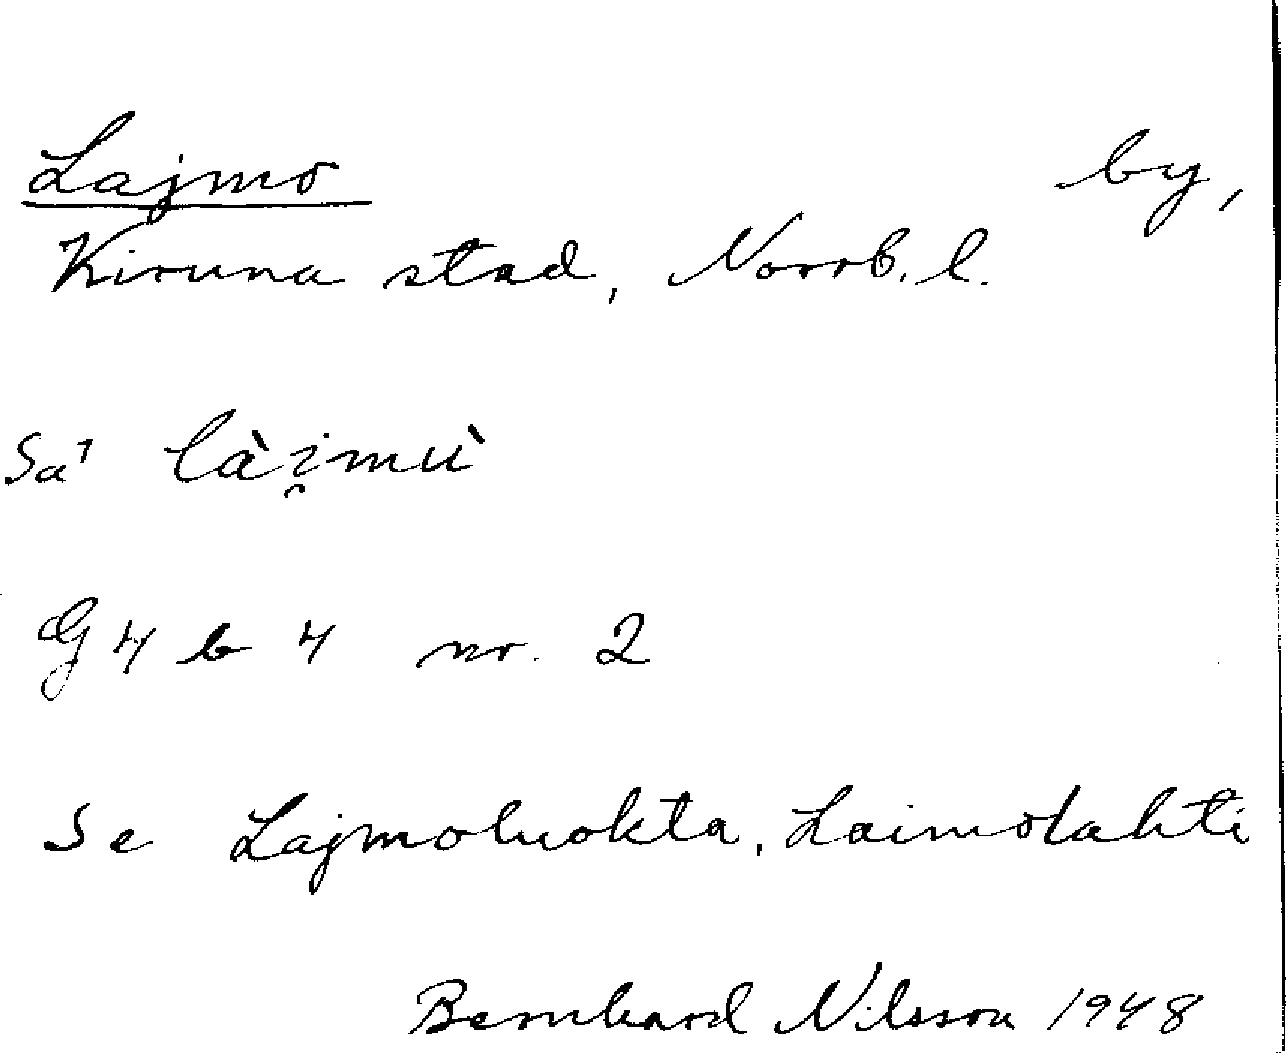 Lajmo by,
Kiruna stad, Norrb. l.
Sa¹ là i̯mù
G 4 b 4 nr. 2
Se Lajmoluokta, Laimolahti
Bernhard Nilsson 1948